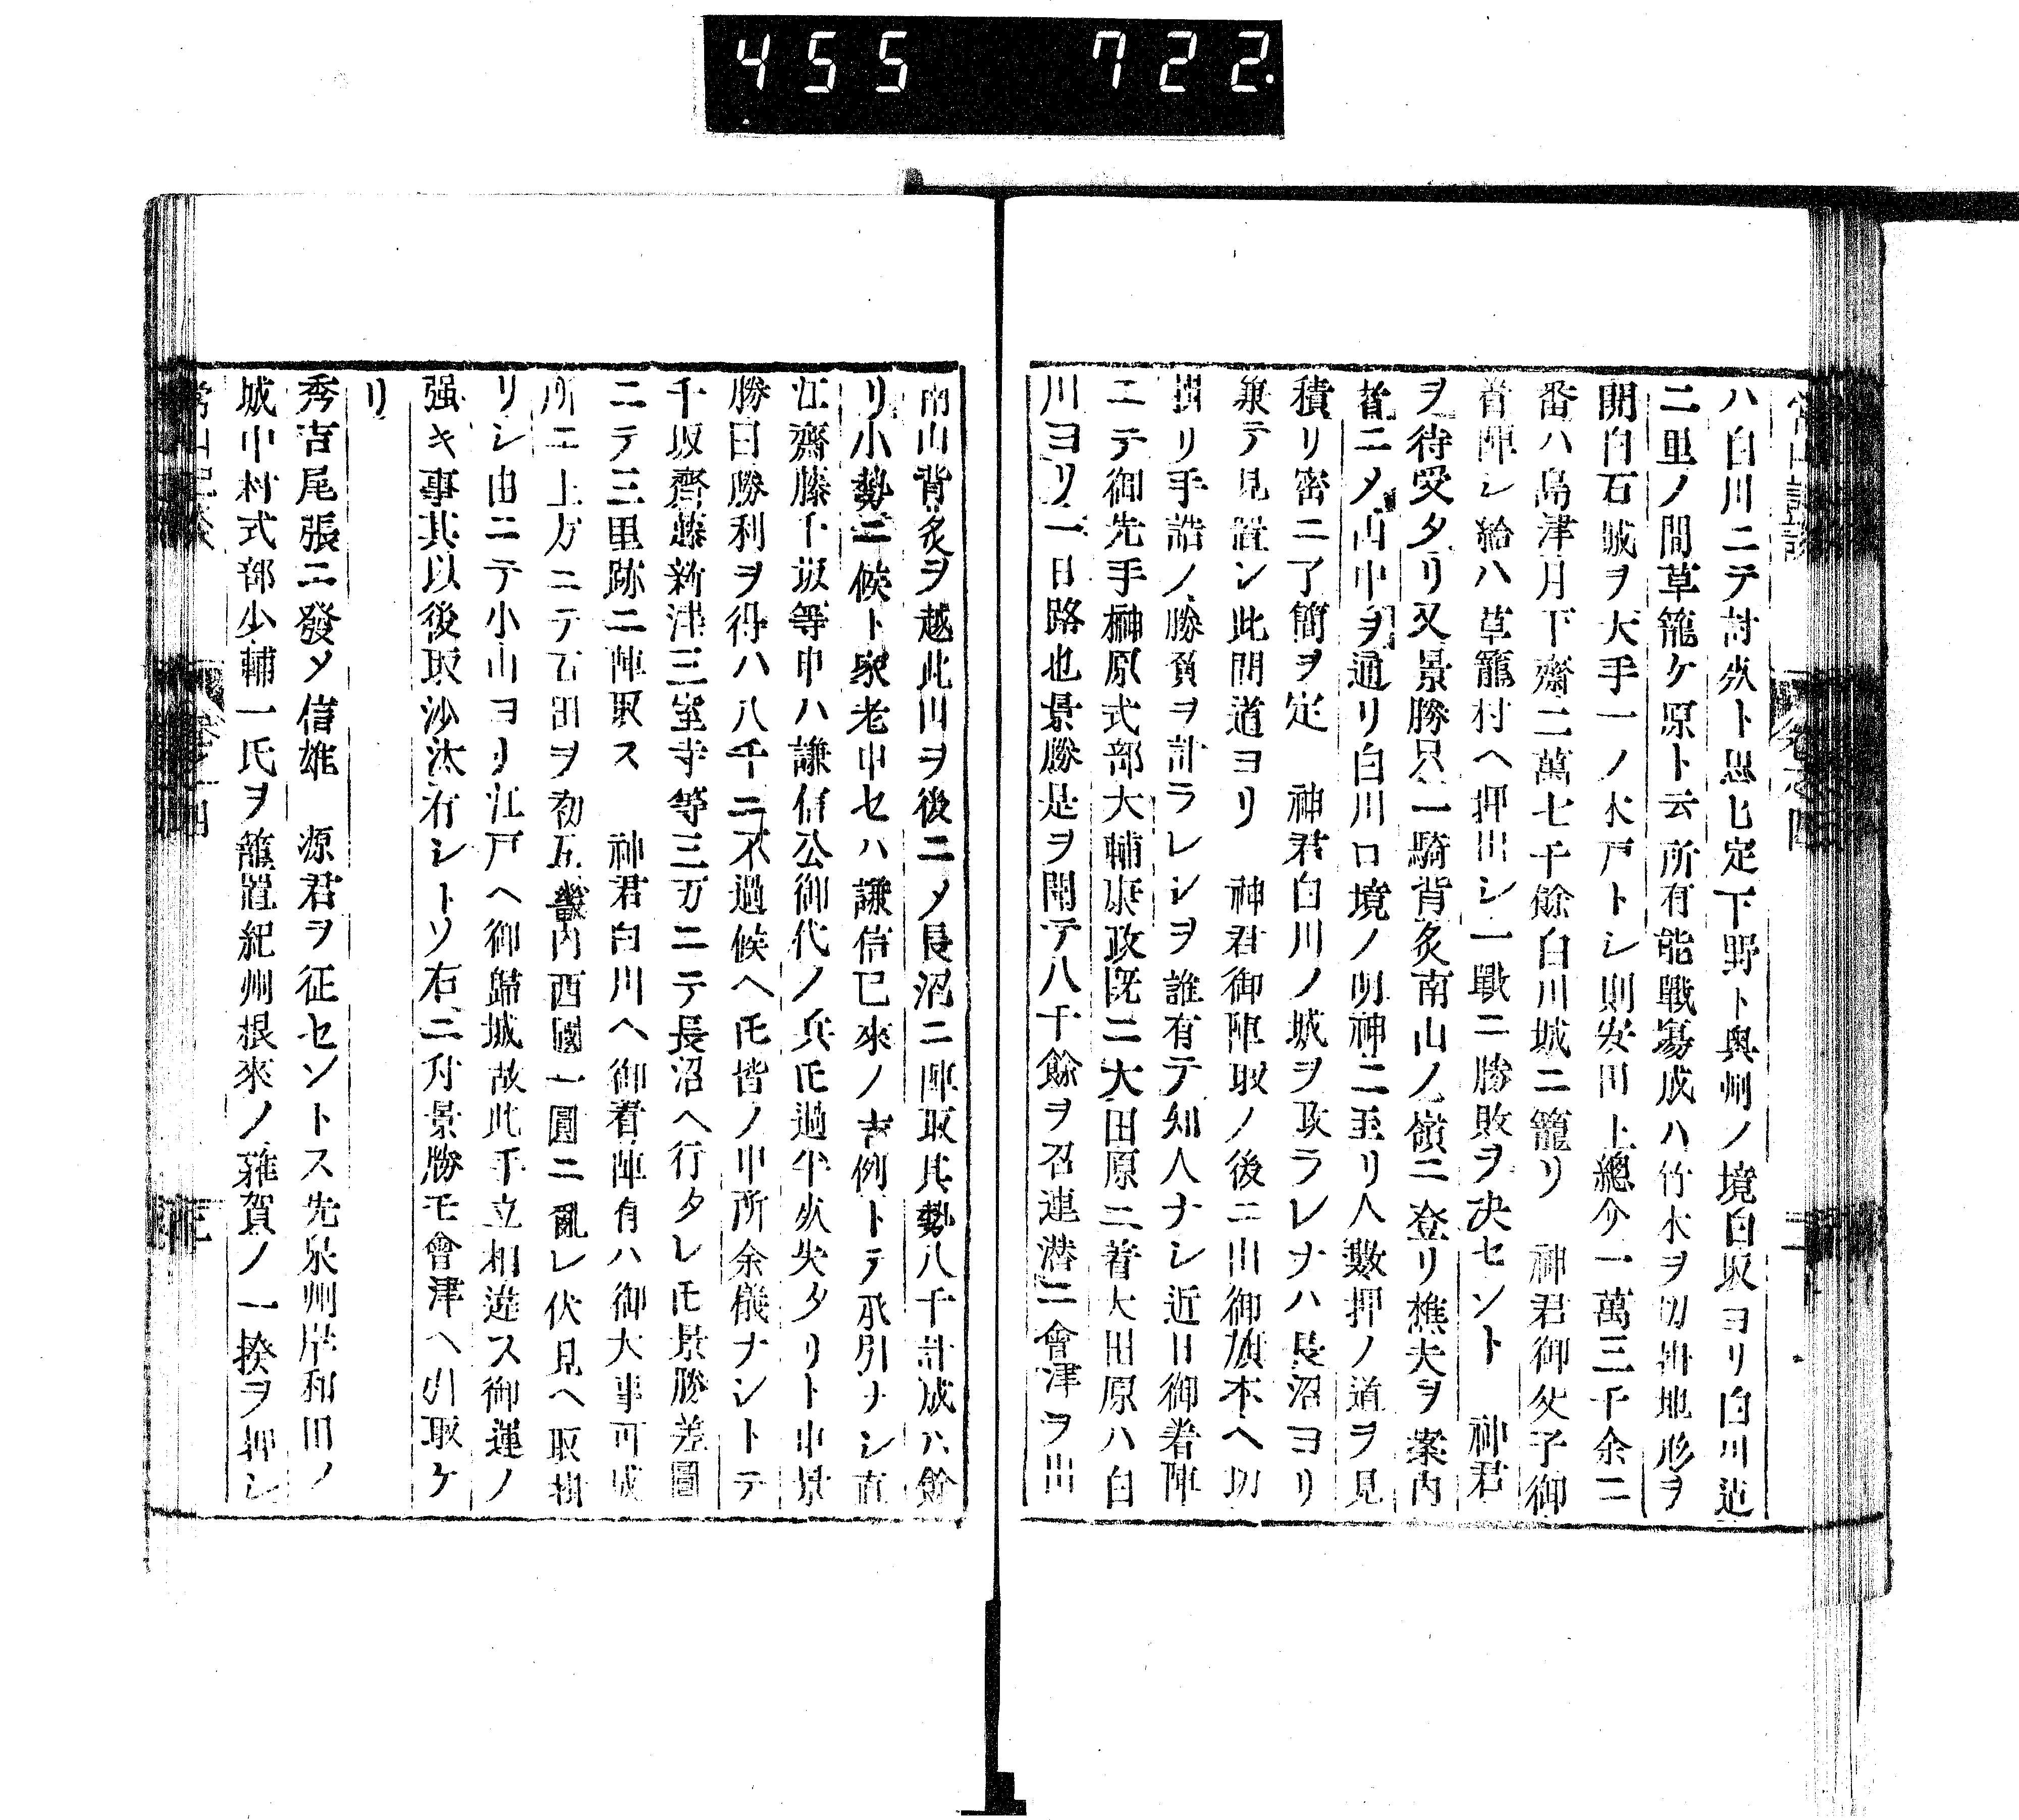 455 722.
ハ白川ニテ討死ト思ヒ定下野ト奥州ノ境白坂ヨリ白川迠
二里ノ間草籠ケ原ト云所有能戰塲成ハ竹木ヲ切拂地形ヲ
開白石城ヲ大手一ノ木戸トシ則安田上總介一萬三千余二
番ハ島津月下齋二萬七千餘白川城ニ籠リ　神君御父子御
着陣シ給ハ草籠村ヘ押出シ一戰ニ勝敗ヲ决セント　神君
ヲ待受タリ又景勝只一騎背炙南山ノ嶺ニ登リ樵夫ヲ案内
者ニメ山中ヲ通リ白川口境ノ明神ニ至リ人數押ノ道ヲ見
積リ密ニ了簡ヲ定　神君白川ノ城ヲ攻ラレナハ長沼ヨリ
兼テ見置シ此間道ヨリ　神君御陣取ノ後ニ出御旗本ヘ切
掛リ手詰ノ勝負ヲ計ラレシヲ誰有テ知人ナシ近日御着陣
ニテ御先手榊原式部大輔康政既ニ大田原ニ着大田原ハ白
川ヨリ一日路也景勝是ヲ聞テ八千餘ヲ召連潜ニ會津ヲ出
南山背炙ヲ越此川ヲ後ニメ長沼ニ陣取其勢八千計成ハ餘
リ小勢ニ候ト家老申セハ謙信已來ノ吉例トテ承引ナシ直
江齋藤千坂等申ハ謙信公御代ノ兵𪜈過半死失タリト申景
勝曰勝利ヲ得ハ八千ニ不過候ヘ𪜈皆ノ申所余儀ナシトテ
千坂齊藤新津三室寺等三万ニテ長沼ヘ行タレ𪜈景勝差圖
ニテ三里跡ニ陣取ス　神君白川ヘ御着陣有ハ御大事可成
所ニ上方ニテ石田ヲ初五畿内西國一圓ニ亂レ伏見ヘ取掛
リシ由ニテ小山ヨリ江戸ヘ御歸城故此手立相違ス御運ノ
强キ事其以後取沙汰有シトソ右ニ付景勝モ會津ヘ引取ケ
リ
秀吉尾張ニ發メ信雄　源君ヲ征セントス先泉州岸和田ノ
城中村式部少輔一氏ヲ籠置紀州根來ノ雜賀ノ一揆ヲ押シ